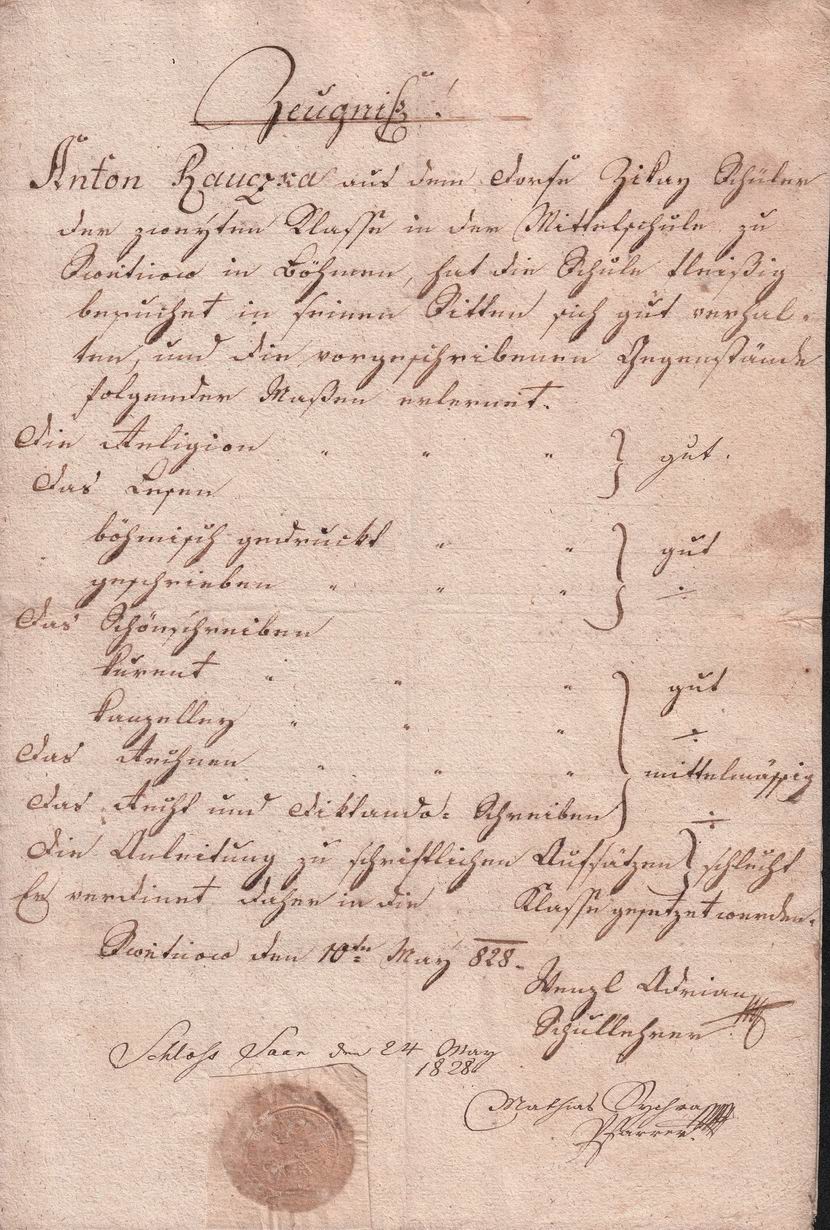 Zeugniß!
Anton Rauczka aus dem Dorfe Zikay Schüler
der zweÿten Klasse in der Mittelschule zu
Swětinow in Böhmen, hat die Schule fleißig
besuchet in seinen Sitten sich gut verhal-
ten, und die vorgeschribenen Gegenstände
folgender Maßen erlernet.
Die Religion " " " } gut.
Das Lesen
böhmisch gedruckt " " } gut
geschrieben " " " ÷
Das Schönschreiben
kurent " " " } gut
kanzelley " " " ÷
Das Rechnen " " " mittelmässig
Das Recht und Diktando-Schreiben ÷
Die Anleitung zu schriftlichen Aufsätzen } schlecht
Er verdinet daher in die Klasse gesetzet werden.
Swětinow den 10ten May 828.
Wenzl Adrian
Schullehrer
Schloss Saar den 24 May
1828
Mathias Sychra
Pfarrer.